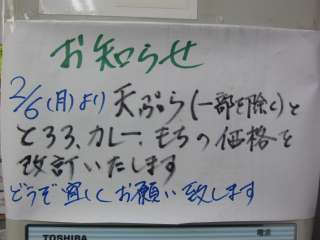 お知らせ
2/6(月)より天ぷら(一部を除く)と
とろろ、カレー、もちの価格を
改訂いたします
どうぞ宜しくお願い致します
TOSHIBA
電波